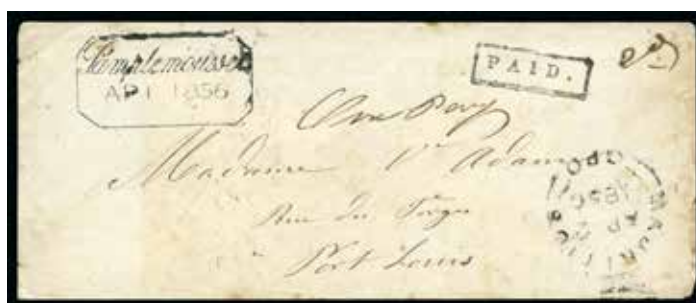 Pamplemousses
AP 1 1856
PAID.
Madame Ve Adam
Rue du
Port Louis
MAURITIUS GPO
AP 2
1856